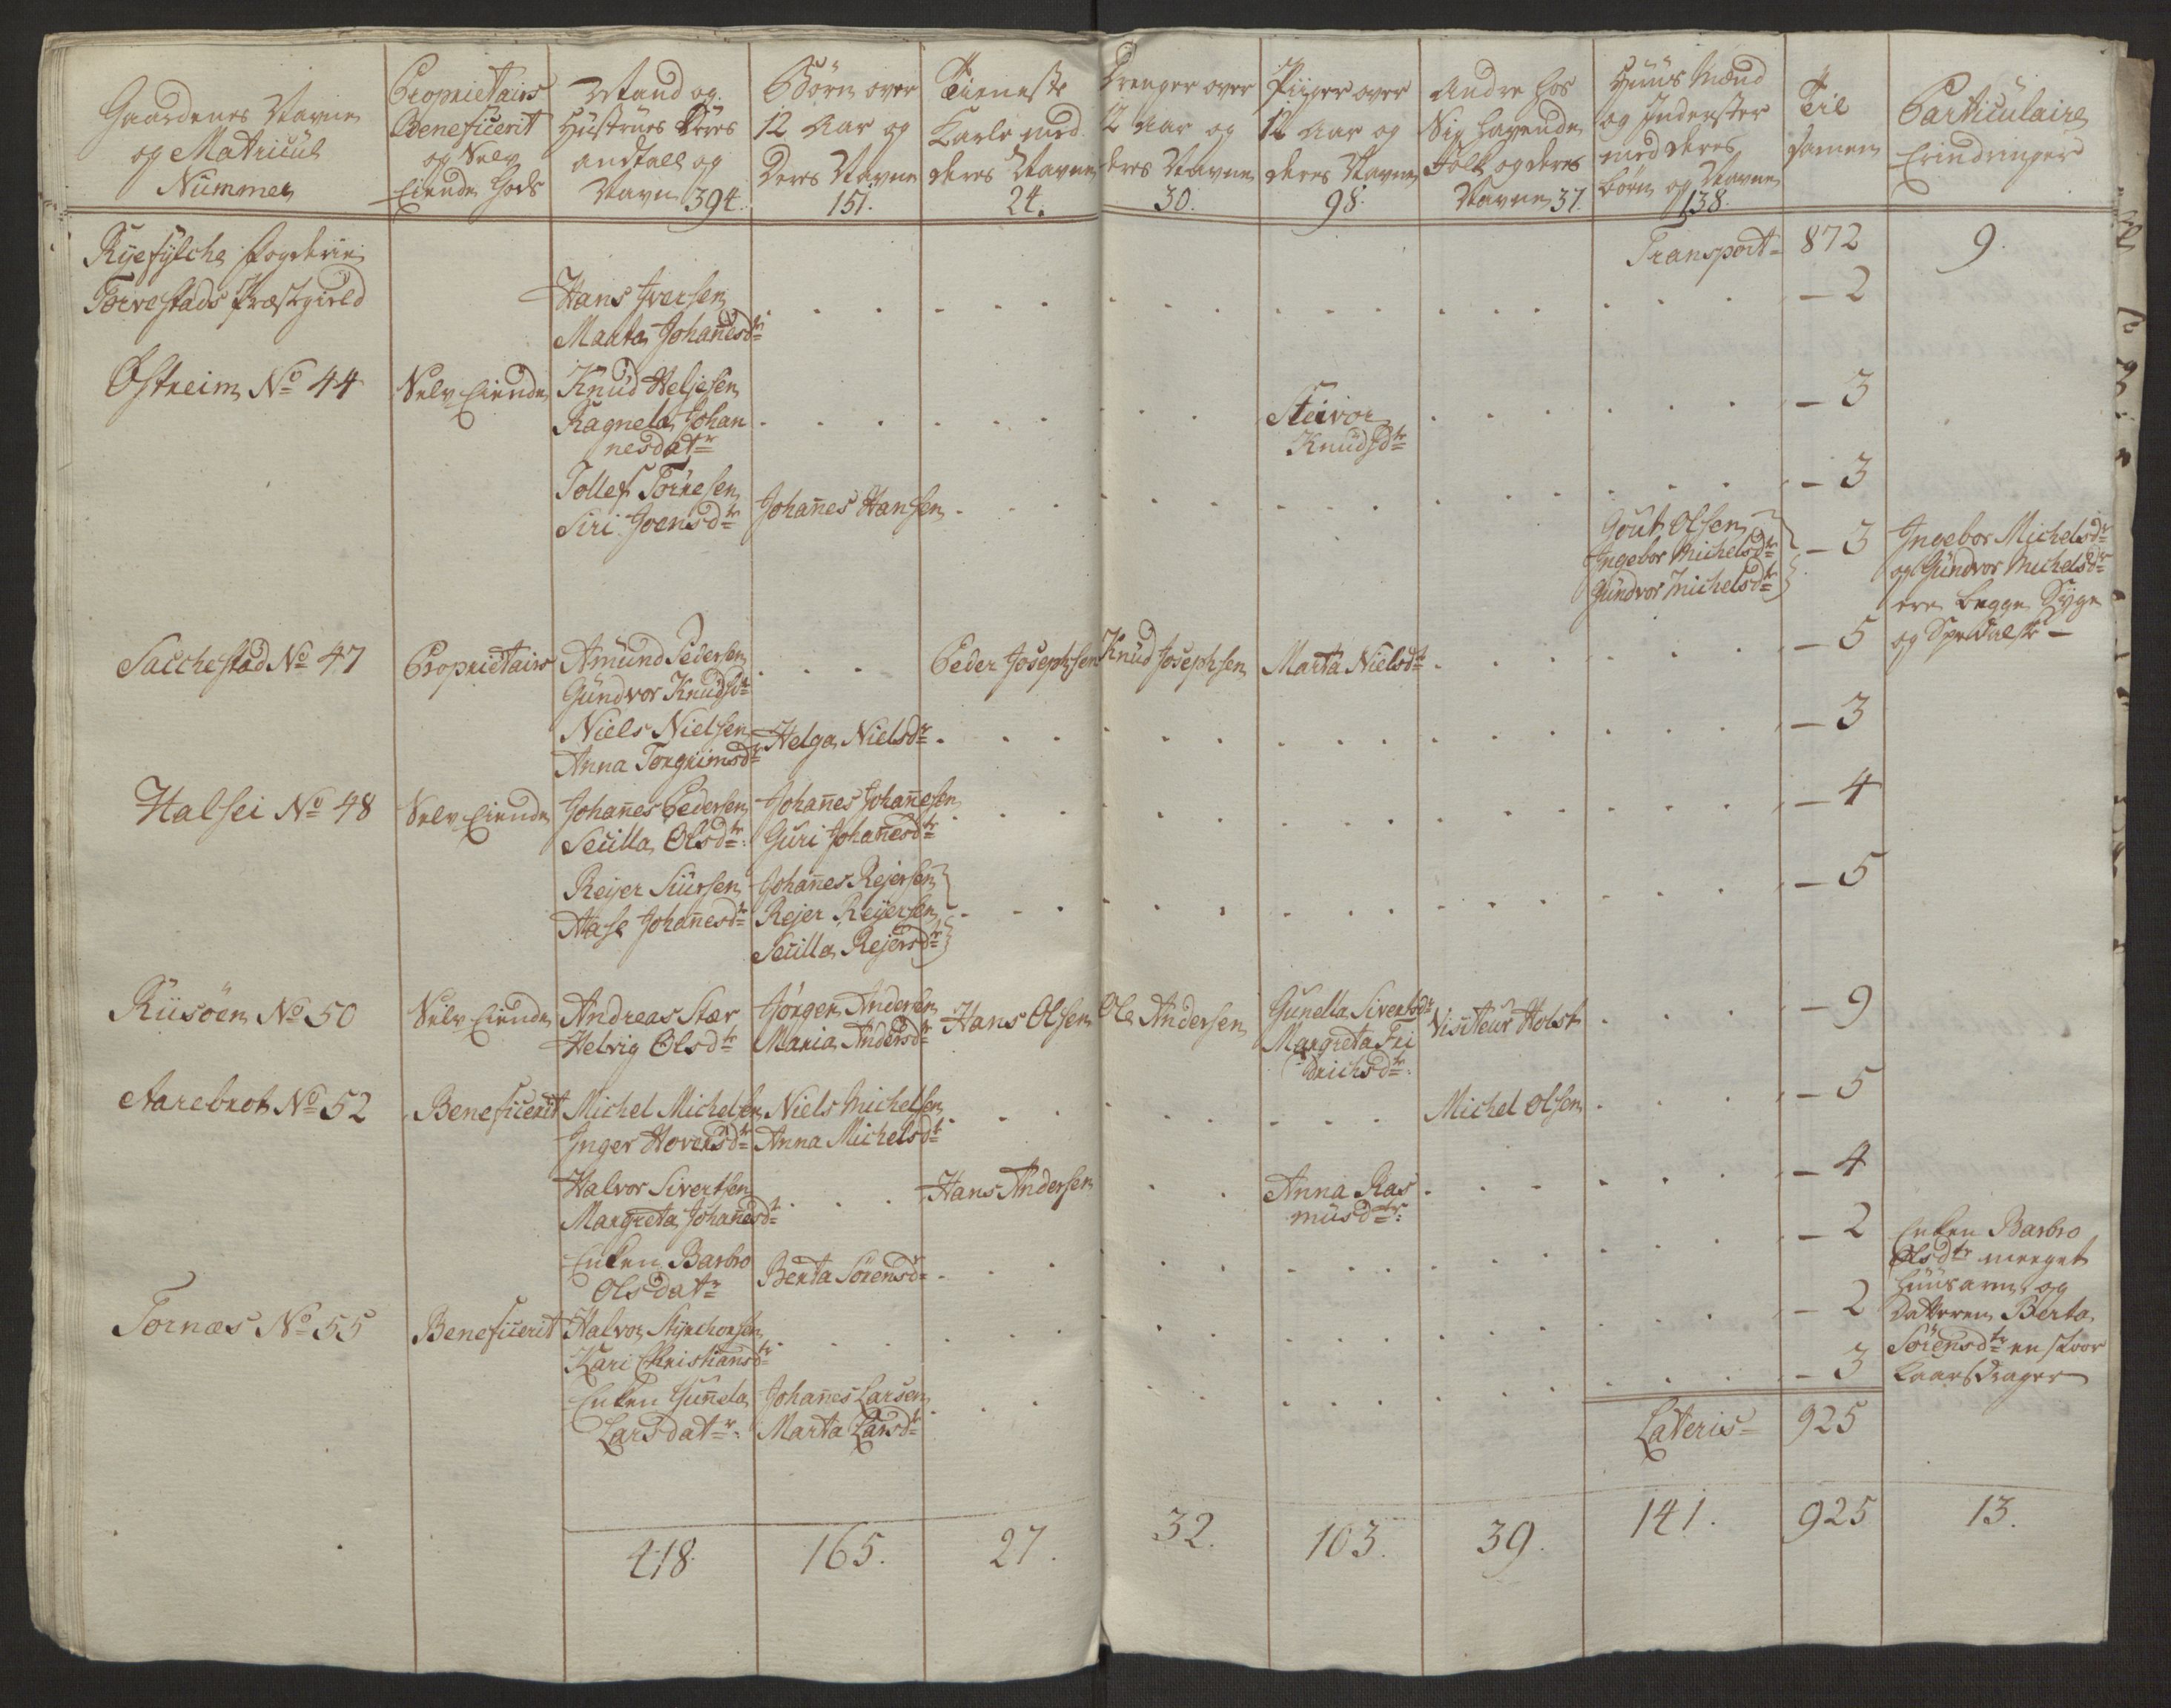 Gaardenes Navne og Matricul Nummer
Proprietairs Beneficerit og Selv Eiende Gods
Mand og Hustrues Deres andtall og Navn 394.
Börn over 12 Aar og Deres Navne 151.
Tieneste Karle med deres Navne 24.
Drenger over 12 Aar og deres Navne 30.
Piiger over 12 Aar og deres Navne 98.
Andre hos Sig havende Folk og deres Navne 37.
Huus Mænd og Inderster med deres börn og Navne 138.
Til samen
Particulaire Erindringer
Ryefylche Fogderie
Torvestads Præstegield
Transport 872 9.
Hans Iversen
Maarta Johanesdtr 2
Östreim No 44 Selv Eiende Knud Heljesen
Ragnela Johan
nesdatr Steivor
Knudsdtr 3
Tollef Törresen
Siri Joensdtr Johanes Hansen 3
Gout Olsen
Ingebor Michelsdtr
Gundvor Michelsdtr 3
Ingebor Michelsdr
og Gundvor Michelsdr
ere begge Syge
og Spedalske
Sacchestad No 47 Proprietairs Amund Pedersen
Gundvor Knudsdr Peder Josephsen Knud Josephsen Marta Nielsdtr 5
Niels Nielsen
Anna Torgrimsdtr Helga Nielsdr 3
Halsei No 48 Selv Eiende Johanes Pedersen
Seuilla Olsdtr Johanes Johanesen
Guri Johanesdtr 4
Reijer Siursen
Aase Johanesdtr Johanes Rejersen
Rejer Reijersen
Seuilla Rejersdtr 5
Riisöen No 50 Selv Eiende Andreas Stær
Helvig Olsdtr Jörgen Andersen
Maria Andersdtr Hans Olsen Ole Andersen Gunella Sivertsdtr
Margreta Fri
drichsdtr Visiteur Holst 9
Aarebrot No 52 Beneficerit Michel Michelsen
Inger Hoversdtr Niels Michelsen
Anna Michelsdtr Michel Olsen 5
Halvor Sivertsen
Margreta Johanesdtr Hans Andersen Anna Ras
musdtr 4
Enken Barbro
Olsdatr Berta Sörensdr 2
Enken Barbro
Olsdtr meeget
huusarm og
Datteren Berta
Sörensdtr en stoor
Laasdrager
Tornæs No 55 Beneficerit Halvor Styrchorsen
Kari Christiansdtr 2
Enken Gunela
Larsdatr Johanes Larsen
Marta Larsdtr 3
Lateris 925
418. 165. 27. 32. 103. 39. 141. 925 13.